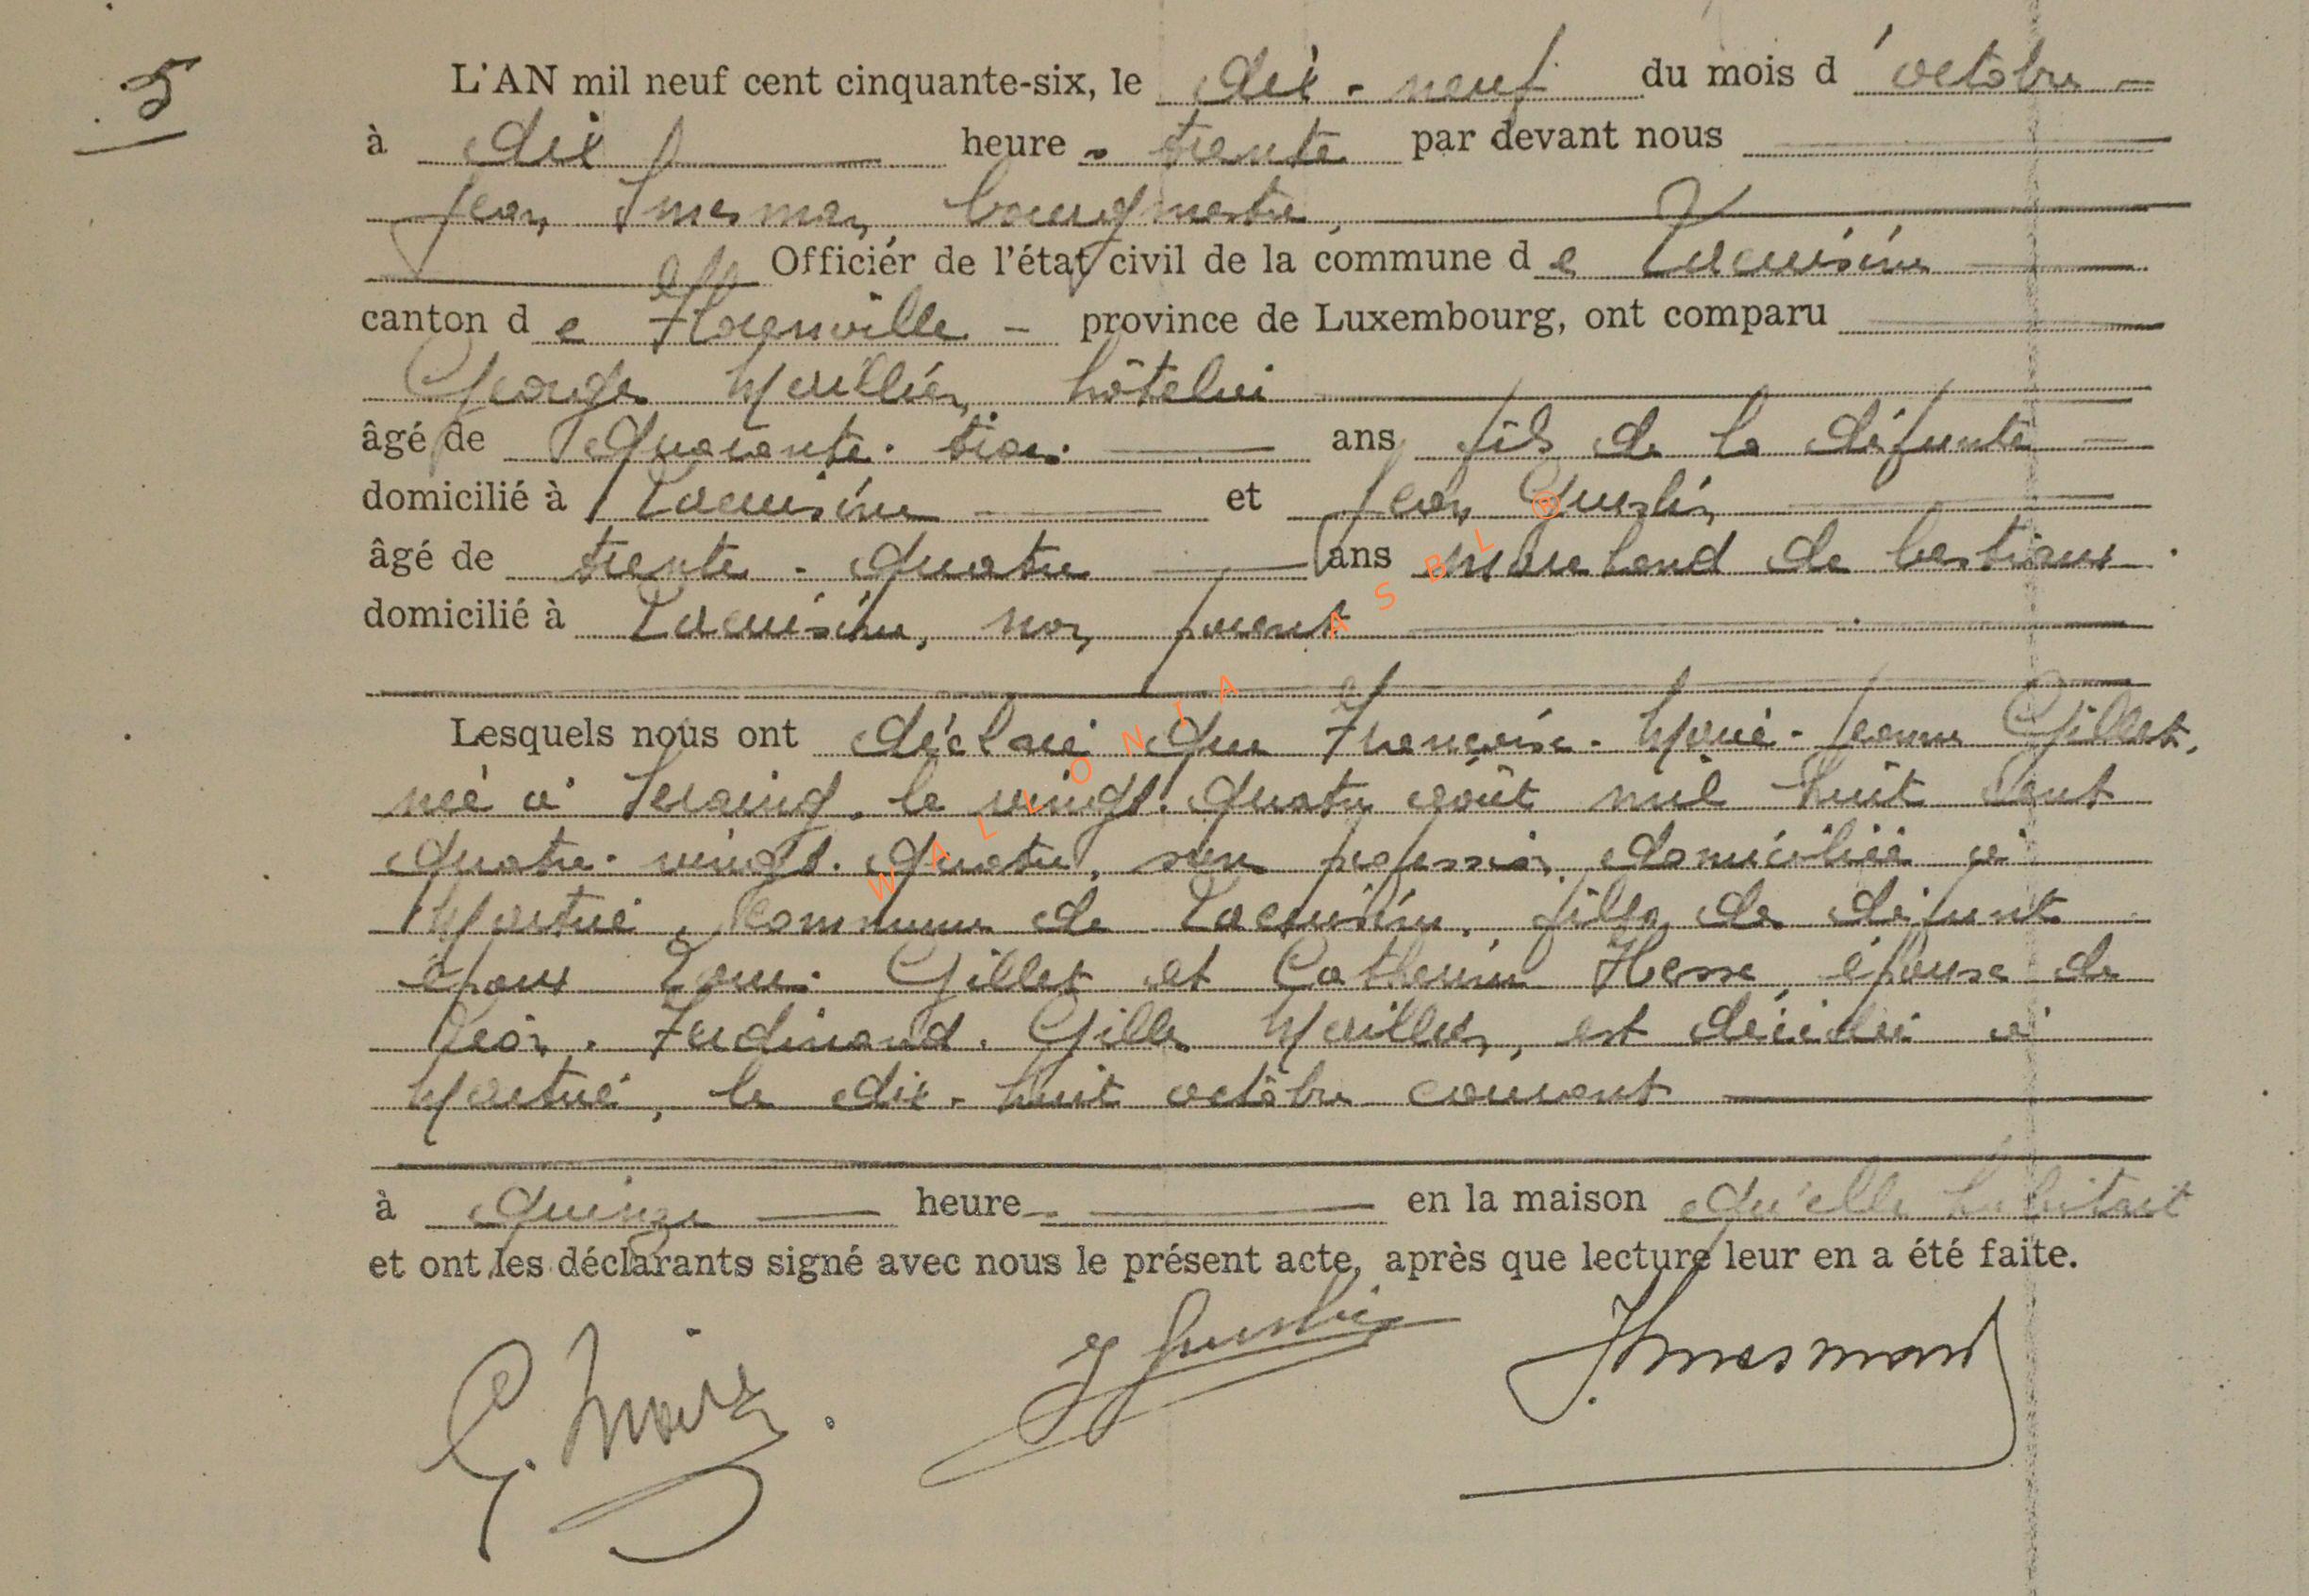 5
L'AN mil neuf cent cinquante-six, le dix-neuf du mois d'octobre
à dix heure trente par devant nous
Jean bourgmestre,
Officier de l'état civil de la commune de Lacuisine
canton de Florenville - province de Luxembourg, ont comparu
George hôtelier
âgé de quarante-trois ans fils de la défunte
domicilié à Lacuisine et Jean
âgé de trente-quatre ans marchand de bestiaux
domicilié à Lacuisine, non parent
Lesquels nous ont déclaré que Françoise-Marie-Jeanne Gillet,
née à Seraing, le vingt-quatre août mil huit cent
quatre-vingt-quatre, sans profession, domiciliée à
Martué, commune de Lacuisine, fille de défunt
époux Louis Gillet et Catherine Hesse, épouse de
Ferdinand Gilles est décédée à
Martué, le dix-huit octobre courant
à quinze heure en la maison qu'elle habitait
et ont les déclarants signé avec nous le présent acte, après que lecture leur en a été faite.
WALLONIA ASBL ®